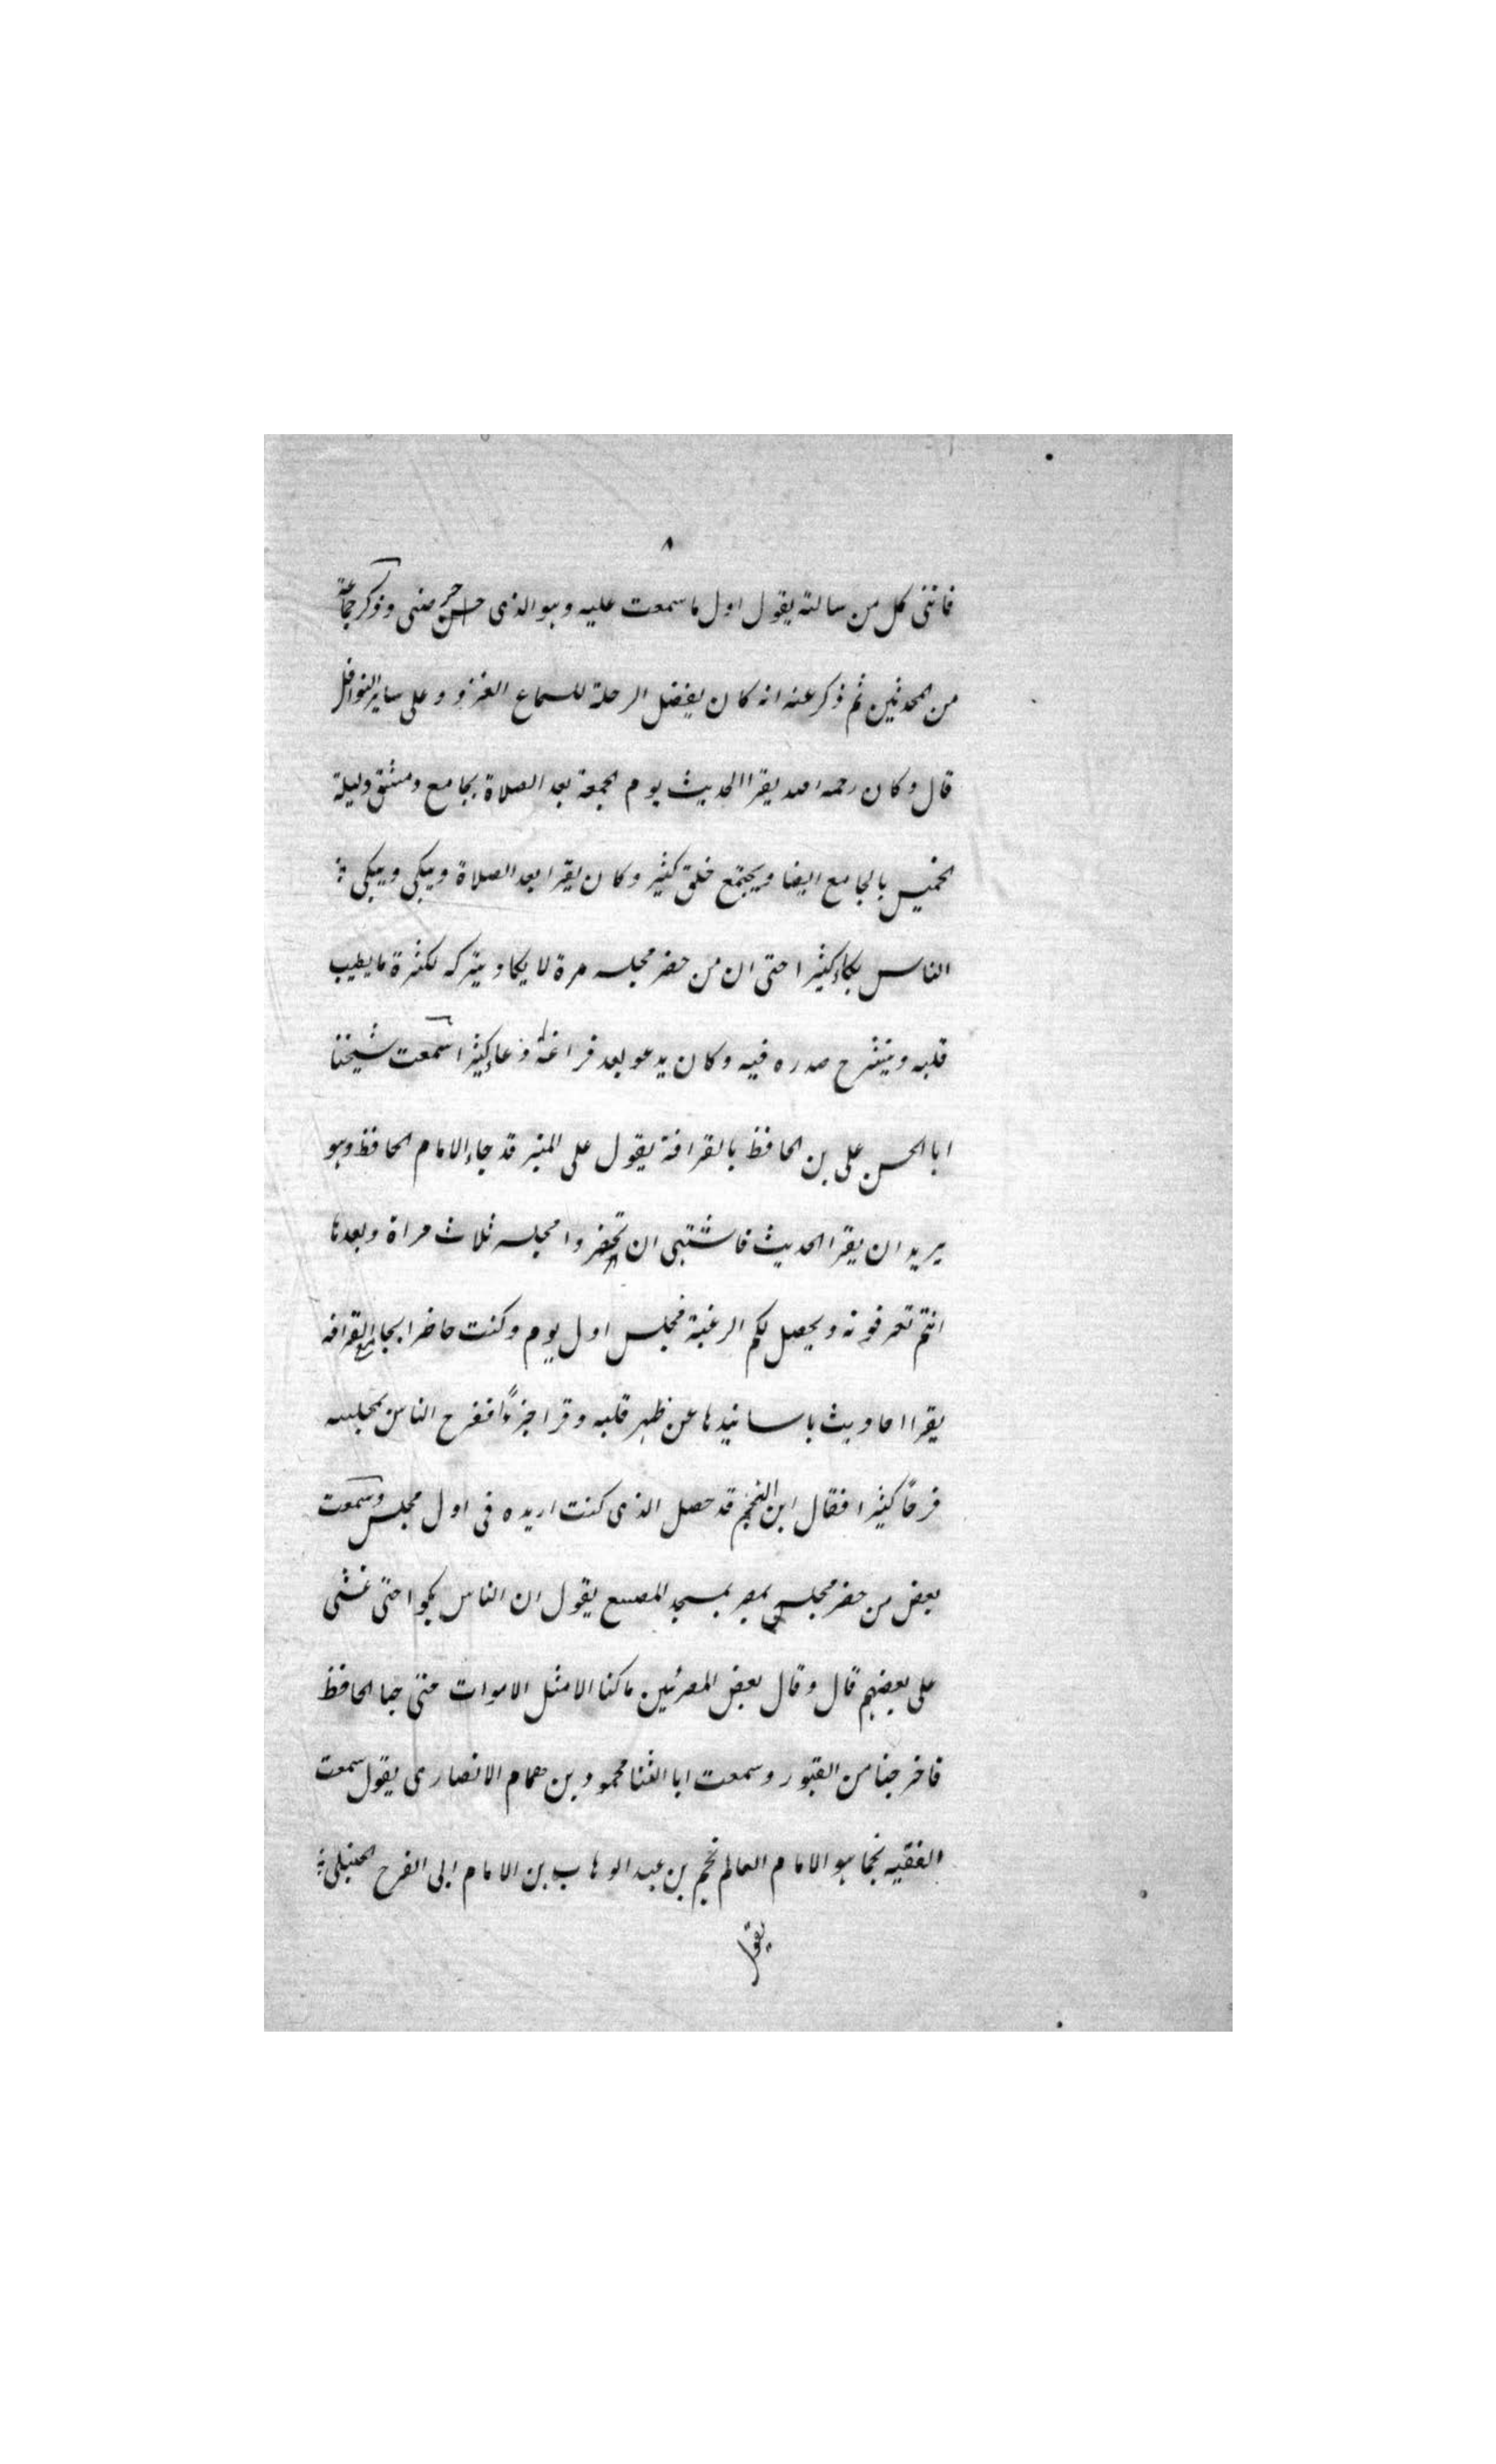 ٨
فانني كل من سالته يقول اول ما سمعت عليه وهو الذي حرضني وذكر جماعة
من المحدثين ثم ذكر عنه انه كان يفضل الرحلة للسماع الغزو وعلى ساير النوافل
قال وكان رحمه الله يقرا الحديث يوم الجمعة بعد الصلاة بجامع دمشق وليلة
الخميس بالجامع ايضا ويجتمع خلق كثير وكان يقرا بعد الصلاة ويبكي ويبكي
الناس بكاء كثيرا حتى ان من حضر مجلسه مرة لا يكاد يتركه لكثرة ما يطيب
قلبه وينشرح صدره فيه وكان يدعو بعد فراغه دعاء كثيرا سمعت شيخنا
ابا الحسن علي بن الحافظ بالقرافة يقول على المنبر قد جاء الامام الحافظ وهو
يريد ان يقرا الحديث فاشتهي ان تحضروا مجلسه ثلاث مراة وبعدها
انتم تعرفونه ويحصل لكم الرغبة فجلس اول يوم وكنت حاضرا بجامع القرافه
يقرا احاديث باسانيدها عن ظهر قلبه وقرا جزءًا ففرح الناس بمجلسه
فرحًا كثيرا فقال ابن النجم قد حصل الذي كنت اريده في اول مجلس وسمعت
بعض من حضر مجلس بمصر بمسجد المصنع يقول ان الناس بكوا حتى غشي
على بعضهم قال وقال بعض المصرئين ما كنا الا مثل الاموات حتى جا الحافظ
فاخرجنا من القبور وسمعت ابا الثنا محمود بن همام الانصاري يقول سمعت
الفقيه نجما هو الامام العالم نجم بن عبد الوهاب بن الامام ابي الفرح الحنبلي
يقول